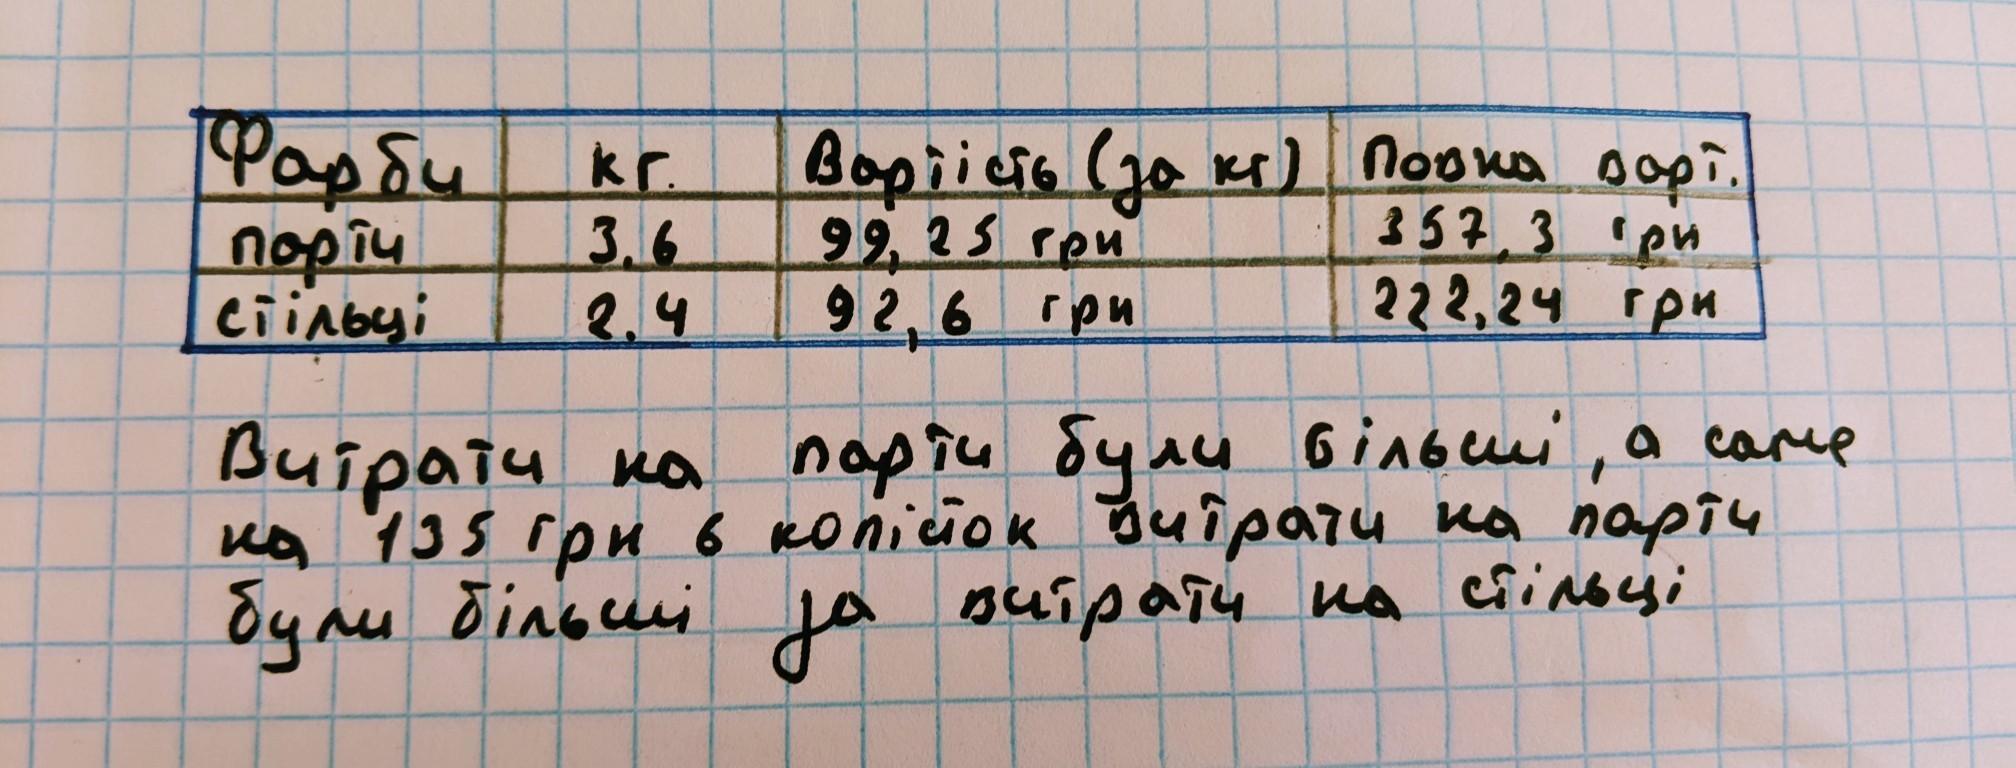 Фарби кг. Вартість (за кг) Повна варт.
парти 3.6 99,25 грн 357,3 грн
стільці 2.4 92,6 грн 222,24 грн
Витрати на парти були більші, а саме
на 135 грн 6 копійок витрати на парти
були більші за витрати на стільці